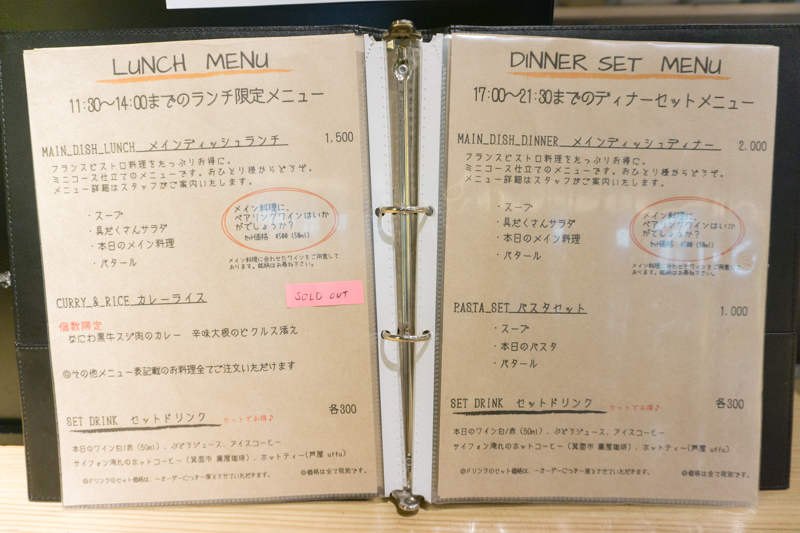 LUNCH MENU
11:30～14:00までのランチ限定メニュー
MAIN_DISH_LUNCH メインディッシュランチ 1.500
フランスビストロ料理をたっぷりお得に。
ミニコース仕立てのメニューです。おひとり様からどうぞ。
メニュー詳細はスタッフがご案内いたします。
・スープ
・具だくさんサラダ
・本日のメイン料理
・バタール
メイン料理に、
ペアリングワインはいか
がでしょうか?
セット価格 ¥500 (50ml)
メイン料理に合わせたワインをご用意して
おります。銘柄はお尋ね下さい。
CURRY_&_RICE カレーライス
SOLD OUT
個数限定
なにわ黒牛スジ肉のカレー 辛味大根のピクルス添え
◎その他メニュー表記載のお料理全てご注文いただけます
SET DRINK セットドリンク セットでお得♪ 各300
本日のワイン白/赤 (50ml)、ぶどうジュース、アイスコーヒー
サイフォン淹れのホットコーヒー (箕面市 裏屋珈琲)、ホットティー(芦屋 uffu)
◎ドリンクのセット価格は、一オーダーにつき一度とさせていただきます。 ◎価格は全て税別です。
DINNER SET MENU
17:00～21:30までのディナーセットメニュー
MAIN_DISH_DINNER メインディッシュディナー 2.000
フランスビストロ料理をたっぷりお得に。
ミニコース仕立てのメニューです。おひとり様からどうぞ。
メニュー詳細はスタッフがご案内いたします。
・スープ
・具だくさんサラダ
・本日のメイン料理
・バタール
メイン料理に、
ペアリングワインはいか
がでしょうか?
セット価格 ¥500 (50ml)
メイン料理に合わせたワインをご用意して
おります。銘柄はお尋ね下さい。
PASTA_SET パスタセット 1.000
・スープ
・本日のパスタ
・バタール
SET DRINK セットドリンク セットでお得♪ 各300
本日のワイン白/赤 (50ml)、ぶどうジュース、アイスコーヒー
サイフォン淹れのホットコーヒー (箕面市 裏屋珈琲)、ホットティー(芦屋 uffu)
◎ドリンクのセット価格は、一オーダーにつき一度とさせていただきます。 ◎価格は全て税別です。